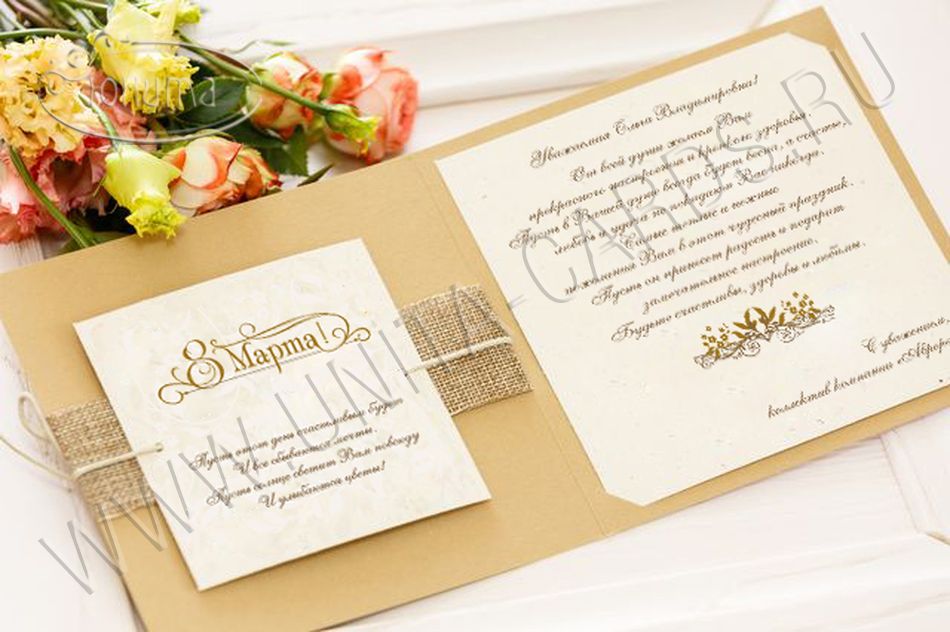 donuma
8 Марта!
Пусть этот день счастливым будет
И все сбываются мечты.
Пусть солнце светит Вам повсюду
И улыбаются цветы!
Уважаемая Ольга Владимировна!
От всей души желаем Вам
прекрасного настроения и крепкого здоровья.
Пусть в Вашей душе всегда будет весна, а счастье,
любовь и удача не покидают Вас никогда.
Самые теплые и нежные
пожелания Вам в этот чудесный праздник.
Пусть он принесет радость и подарит
замечательное настроение.
Будьте счастливы, здоровы и любимы.
С уважением,
коллектив компании «Аврора
WWW.UNITA-CARDS.RU